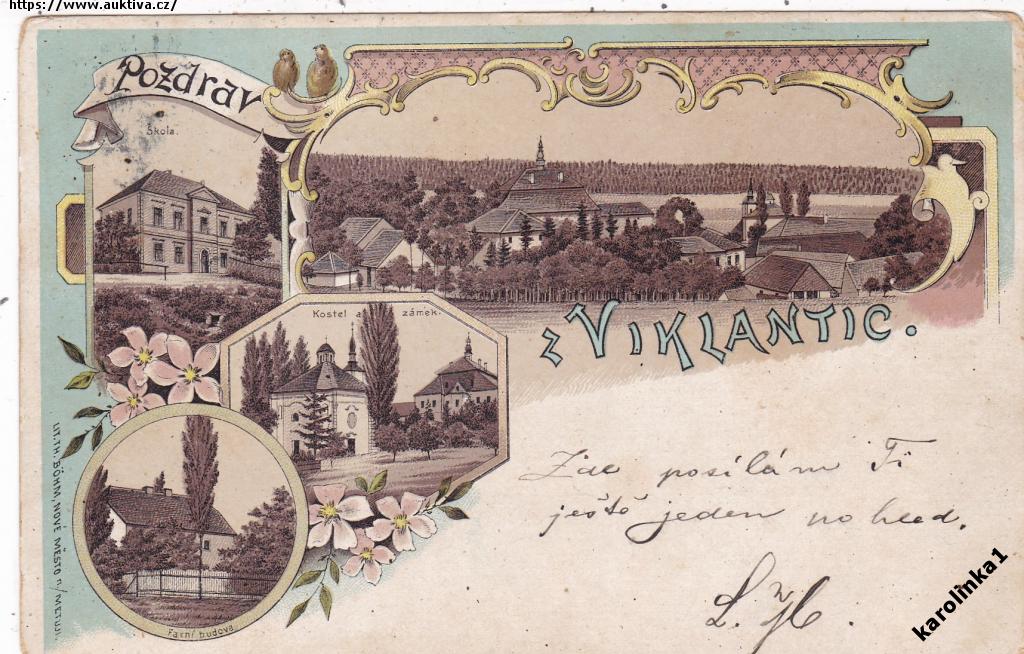 https://www.auktiva.cz/
Pozdrav
Škola.
z VIKLANTIC.
Kostel a zámek.
Farní budova.
LIT. TH. BÖHM, NOVÉ MĚSTO n/METUJI.
Zde posílám Ti
ještě jeden pohled.
karolinka1